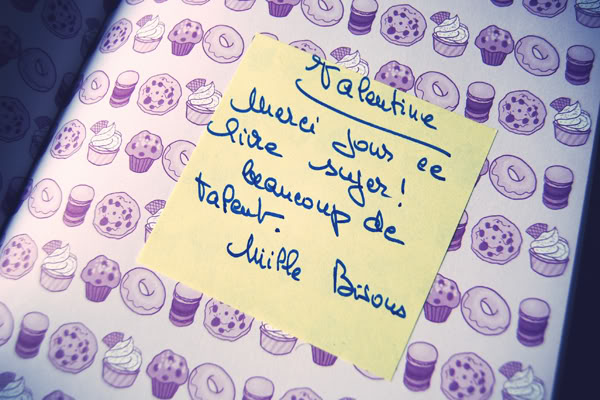 Valentine
Merci pour ce
livre super!
beaucoup de
talent.
Mille Bisous